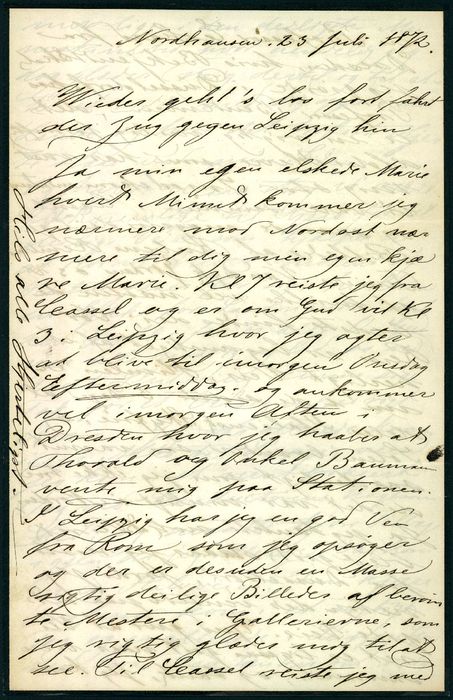 Nordhausen. 23 Juli 1872.
Wieder geht's los fort fährt
der Zug gegen Leipzig hin
Ja min egen elskede Marie
hvert Minut kommer jeg
nærmere mod Nordost næ-
mere til dig min egen kjæ
re Marie. Kl 7 reiste jeg fra
Cassel og er om Gud vil Kl
3 i Leipzig hvor jeg agter
at blive til imorgen Onsdag
Eftermiddag. og ankommer
vel imorgen Aften i
Dresden hvor jeg haaber at
Thorald og Onkel Bauman
vente mig paa Stationen.
I Leipzig har jeg en god Ven
fra Rom som jeg opsøger
og der er desuden en Masse
rigtig deilige Billeder af berøm
te Mestere i Gallerierne, som
jeg rigtig glæder mig til at
see. Til Cassel reiste jeg med
Hils alle Hjerteligst.